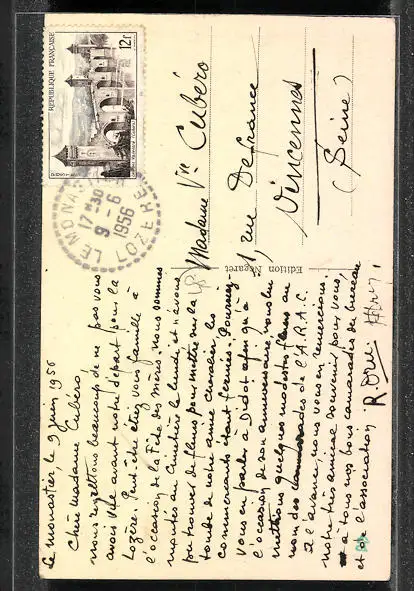 Le monastier, le 9 juin 1956
Chère madame Cubéro,
nous regrettons beaucoup de ne pas vous
avoir vue avant notre départ pour la
Lozère. Peut-être étiez vous en famille à
l'occasion de la Fête des mères. nous sommes
montés au Cimetière le lundi et n'avons
pu trouver de fleurs pour mettre sur la
tombe de notre amie car les
commerçants étant fermés. Pourriez-
vous en parler à Didot afin qu'à
l'occasion de son anniversaire, vous lui
mettiez quelques modestes fleurs au
nom des camarades de l'A.R.A.C.
à l'avance, nous vous en remercions.
notre très amical souvenir pour vous,
à tous nos bons camarades de bureau
et de l'association
REPUBLIQUE FRANÇAISE
12f
LE MONAS
17H30
9-6
1956
LOZERE
Madame Vve Cubéro
1, rue Defrance
Vincennes
(Seine)
Edition Nogaret